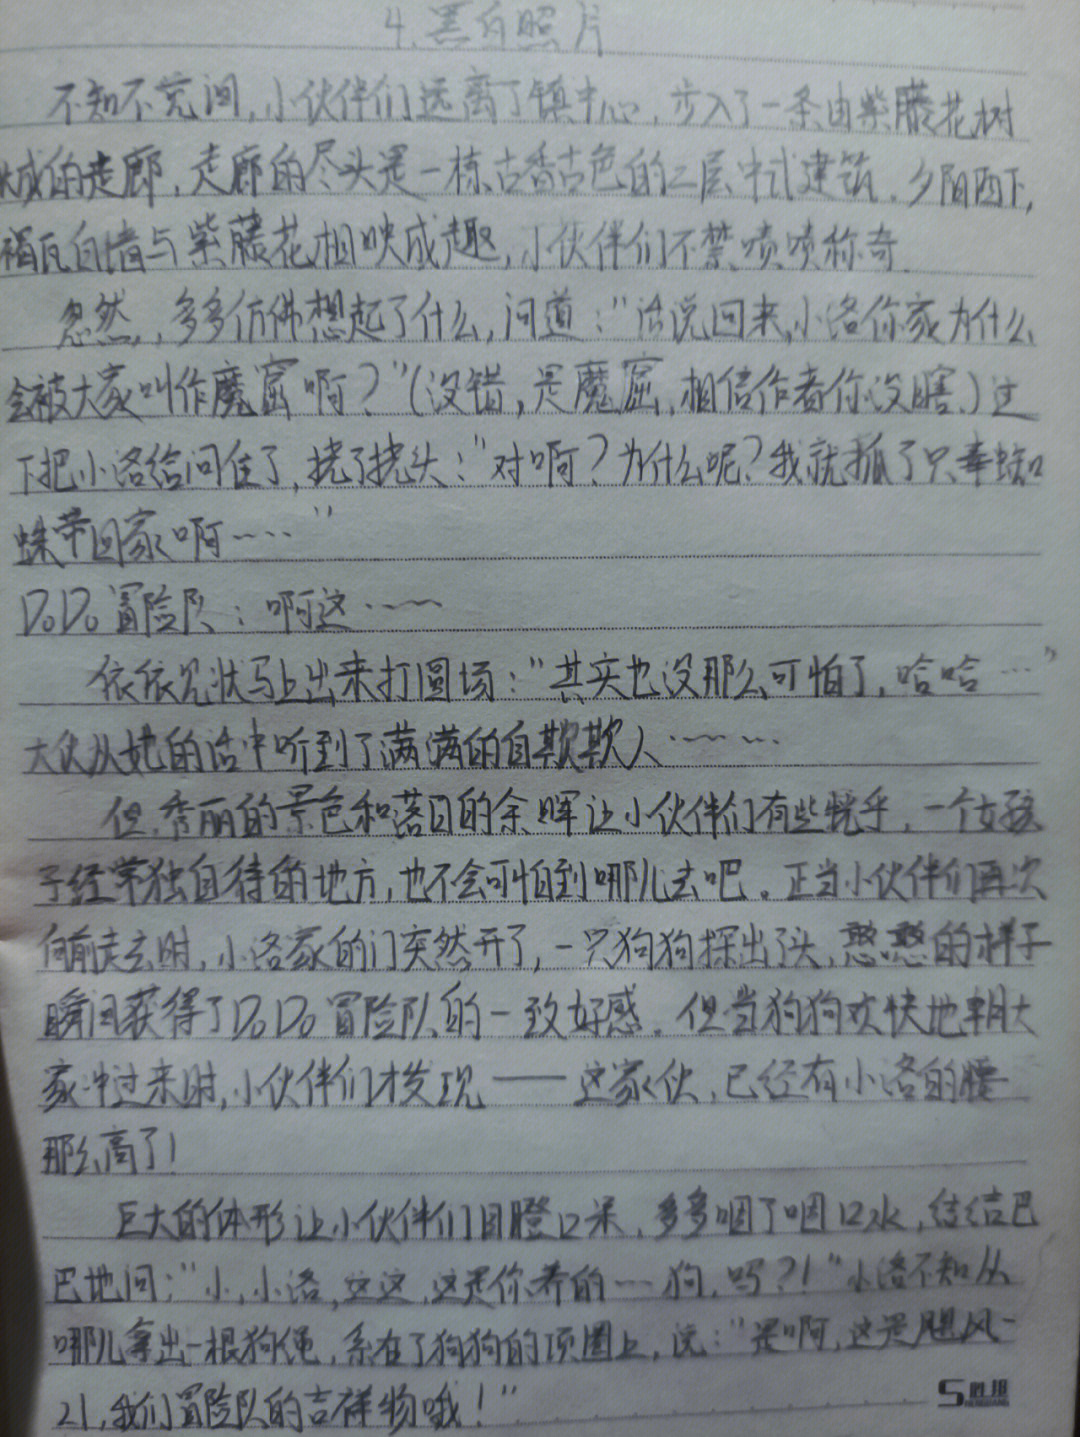 4.黑白照片
不知不觉间,小伙伴们远离了镇中心,步入了一条由紫藤花树
成的走廊,走廊的尽头是一栋古香古色的二层中式建筑。夕阳西下,
褐瓦白墙与紫藤花相映成趣,小伙伴们不禁啧啧称奇.
忽然,,多多仿佛想起了什么,问道:"话说回来,小洛你家为什么
会被大家叫作魔窟啊?"(没错,是魔窟,相信作者你没瞎、)这
下把小洛给问住了,挠了挠头:"对啊?为什么呢?我就抓了只毒蜘
蛛带回家啊……"
DoDo冒险队:啊这……
依依见状马上出来打圆场:"其实也没那么可怕了,哈哈…"
大伙从她的话中听到了满满的自欺欺人……
但,秀丽的景色和落日的余晖让小伙伴们有些恍乎,一个女孩
子经常独自待的地方,也不会可怕到哪儿去吧。正当小伙伴们再次
向前走去时,小洛家的门突然开了,一只狗狗探出了头,憨憨的样子
瞬间获得了DoDo冒险队的一致好感。但当狗狗欢快地朝大
家冲过来时,小伙伴们才发现——这家伙,已经有小洛的腰
那么高了!
巨大的体形让小伙伴们目瞪口呆,多多咽了咽口水,结结巴
巴地问:"小,小洛,这这,这是你养的…狗,吗?!"小洛不知从
哪儿拿出一根狗绳,系在了狗狗的项圈上,说:"是啊,这是飓风-
21,我们冒险队的吉祥物哦!"